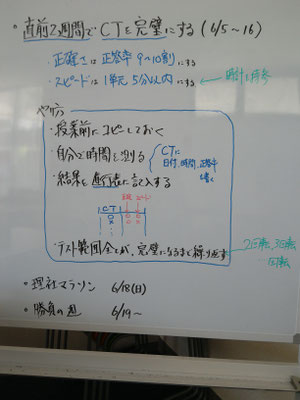 ・直前2週間でCTを完璧にする(6/5〜16)
・正確さは正答率9〜10割にする
・スピードは1単元5分以内にする ← 時計を持参
やり方
・授業前にコピーしておく
・自分で時間を測る CTに日付、時間、正答率を書く
・結果を進行表に記入する
CT
・テスト範囲全てが、完璧になるまで繰り返す
2回転、3回転
・理社マラソン 6/18(日)
・勝負の週 6/19〜